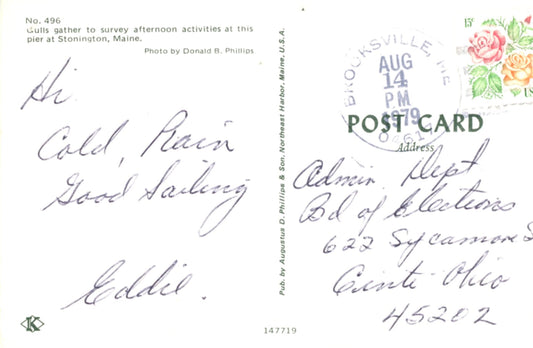 No. 496
Gulls gather to survey afternoon activities at this
pier at Stonington, Maine.
Photo by Donald B. Phillips
Hi
Cold, Rain
Good Sailing
Eddie.
K
Pub. by Augustus D. Phillips & Son, Northeast Harbor, Maine, U.S.A.
147719
BROOKSVILLE, ME
AUG
14
PM
1979
15¢
US
POST CARD
Address
Admin. Dept
Bd of Elections
622 Sycamore S
Cinti Ohio
45202